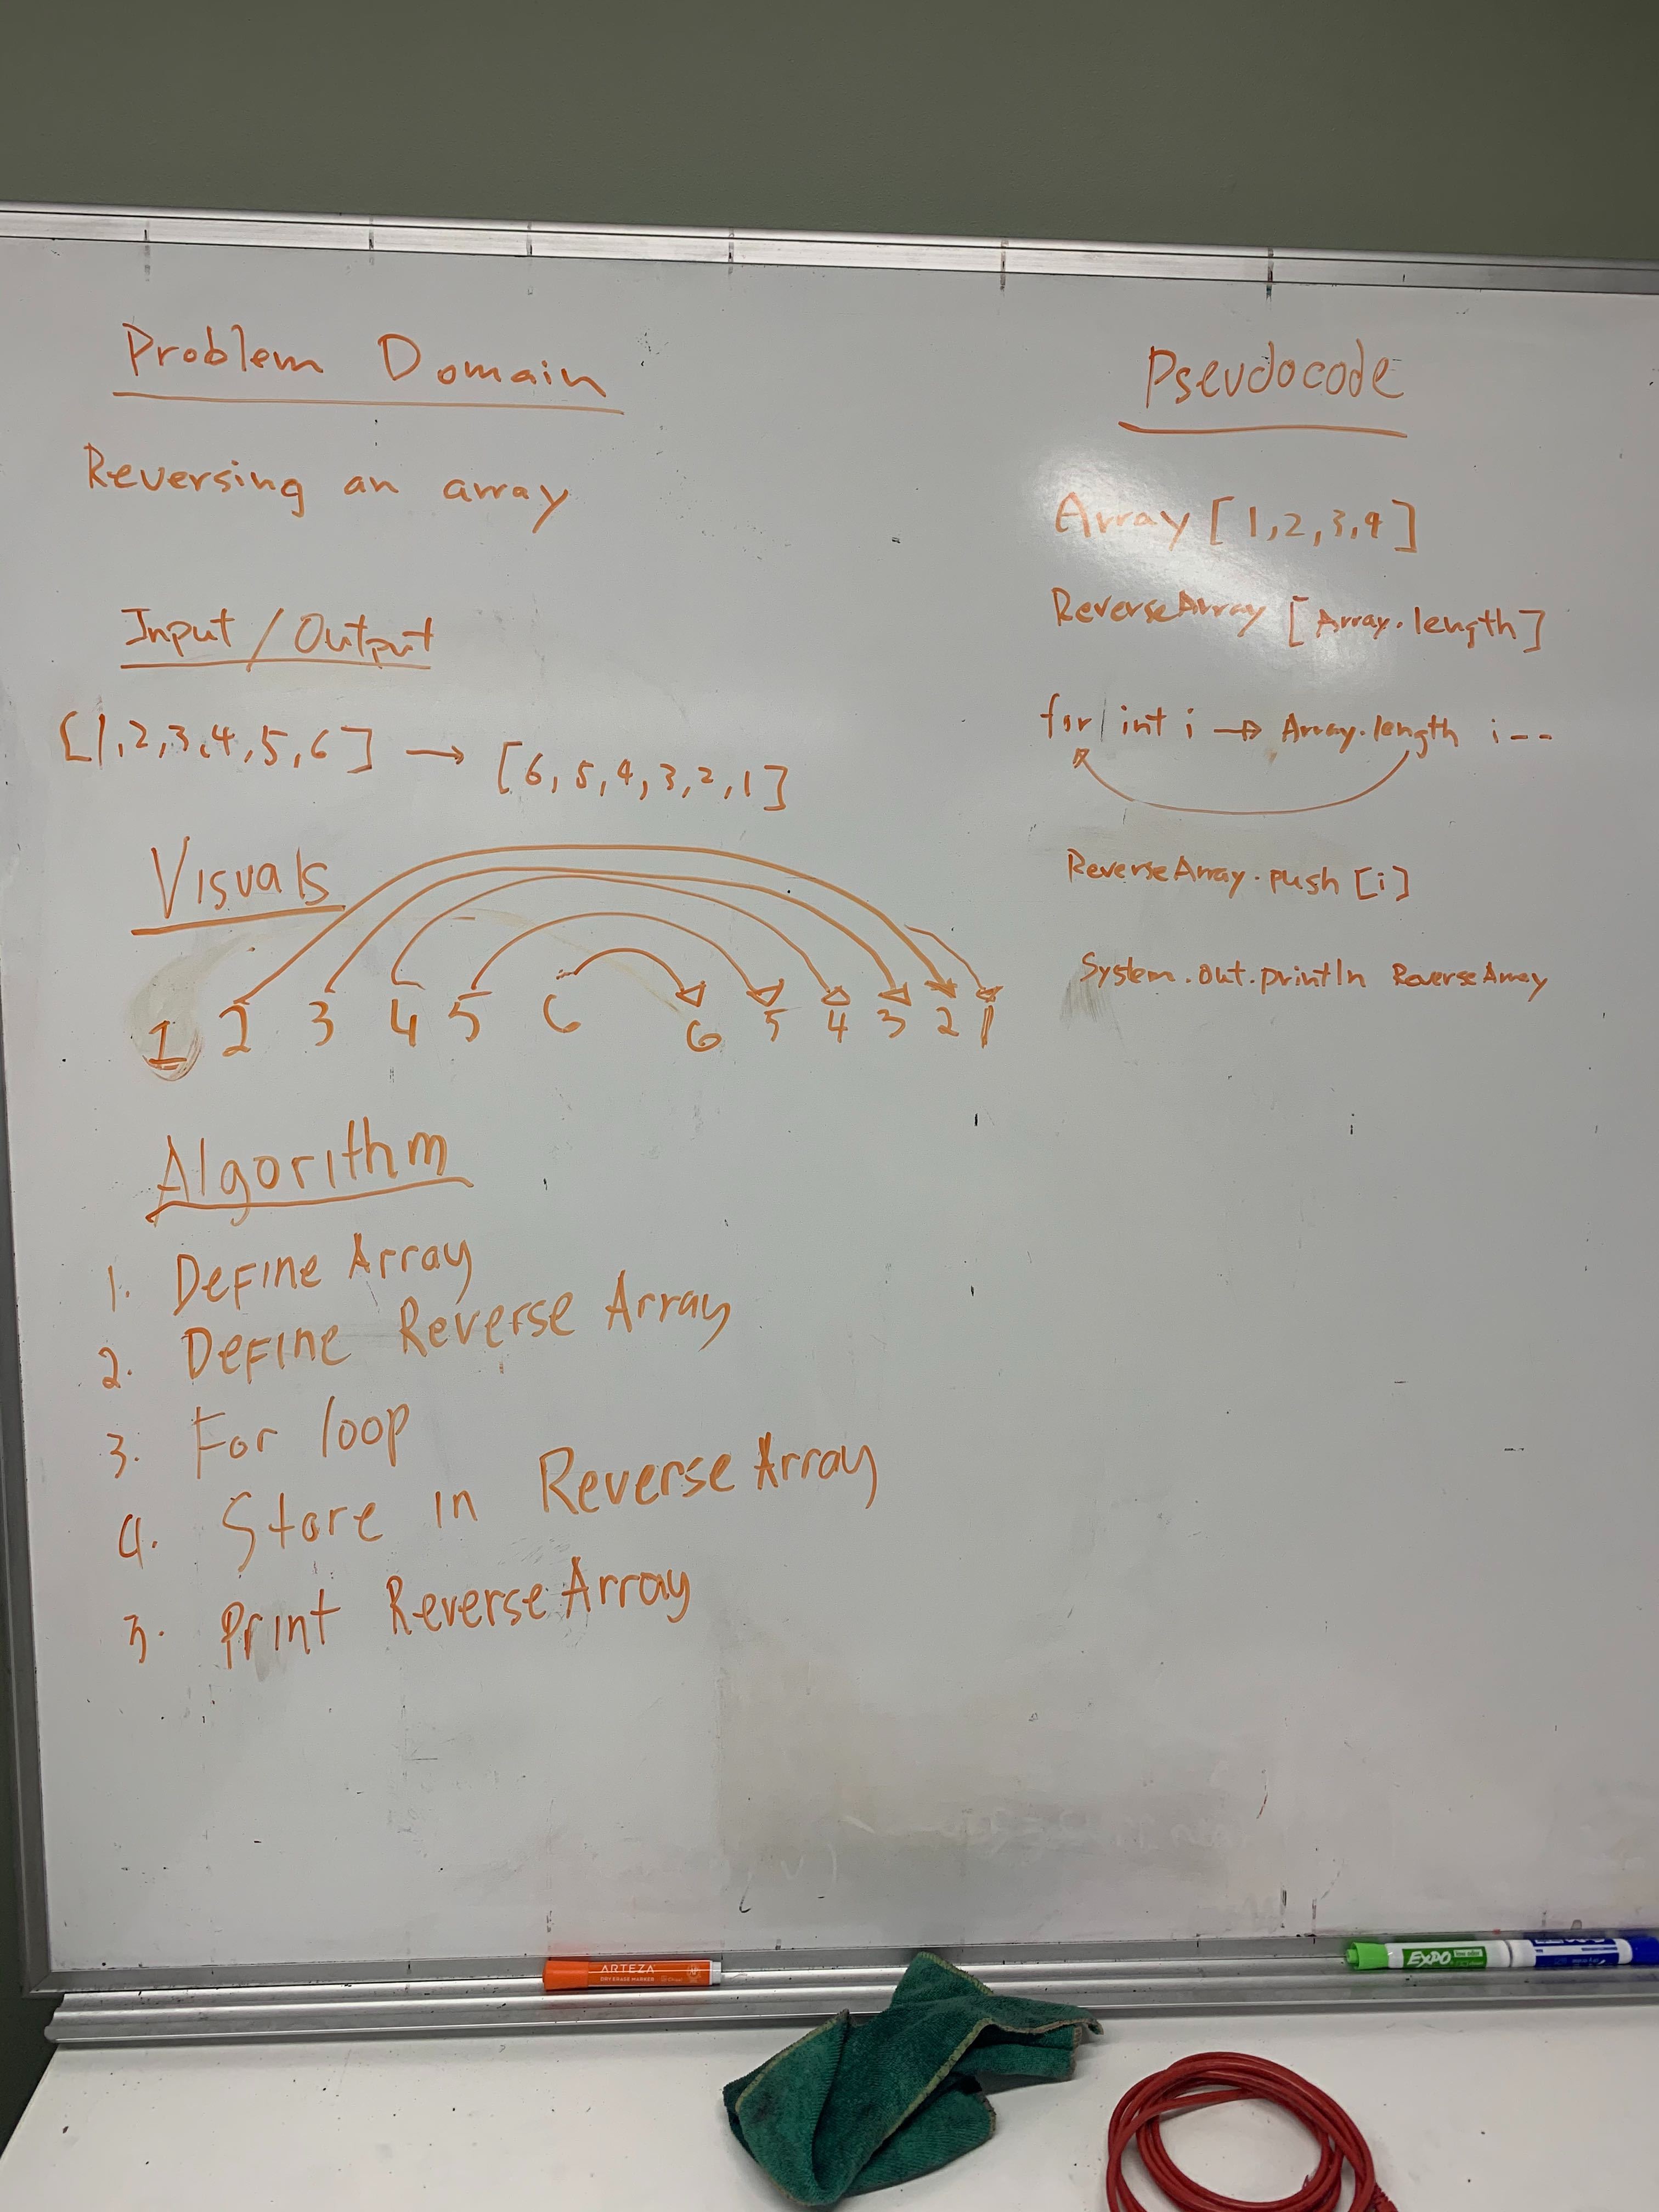 Problem Domain
Reversing an array
Input / Output
[1,2,3,4,5,6] → [6,5,4,3,2,1]
Visuals
1 2 3 4 5 6 6 5 4 3 2 1
Algorithm
1. Define Array
2. Define Reverse Array
3. For loop
4. Store in ReverseArray
5. Print ReverseArray
Pseudocode
Array [1,2,3,4]
ReverseArray [Array.length]
for int i → Array.length i--
ReverseArray.push [i]
System.out.println ReverseArray
ARTEZA
DRY ERASE MARKER
EXPO